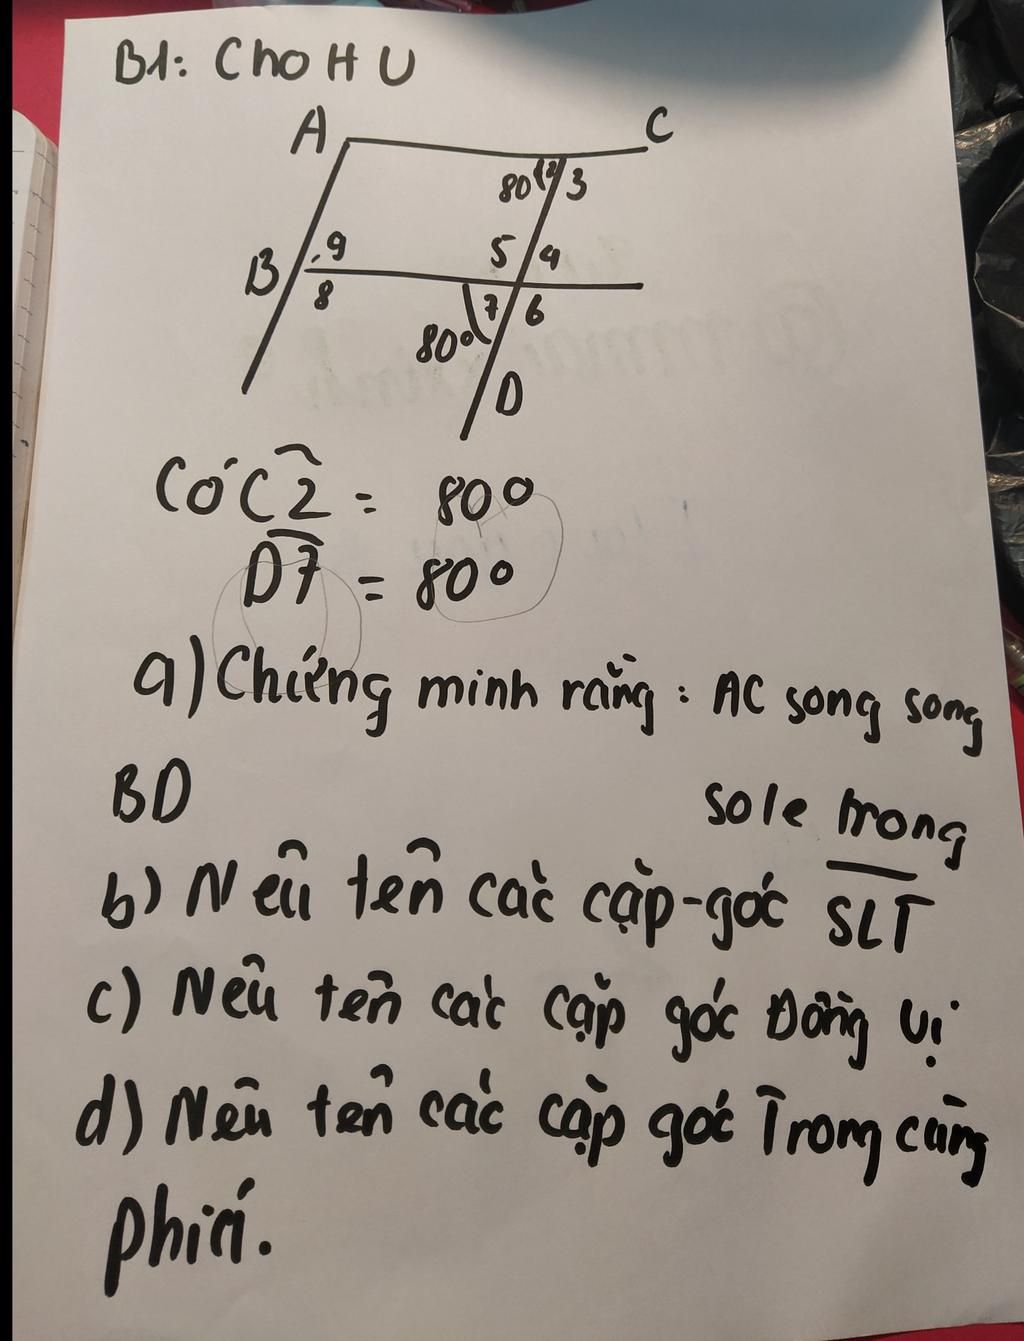 B1: Cho H U
A
C
80 2 3
9
5 4
B
8
7 6
80°
D
Có C2 = 80°
D7 = 80°
a) Chứng minh rằng: AC song song
BD
sole trong
b) Nêu tên các cặp-góc SLT
c) Nêu tên các cặp góc Đồng vị
d) Nêu tên các cặp góc Trong cùng
phía.